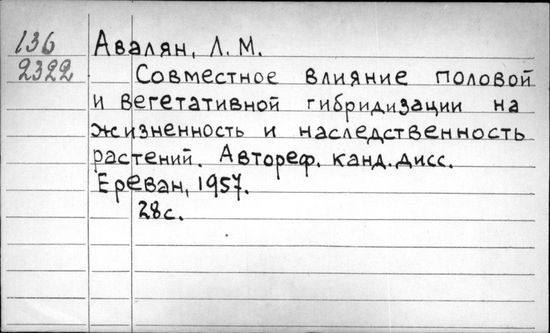 136 Авалян, Л. М.
2322 Совместное влияние половой
и вегетативной гибридизации на
жизненность и наследственность
растений. Автореф. канд. дисс.
Ереван, 1957.
28с.